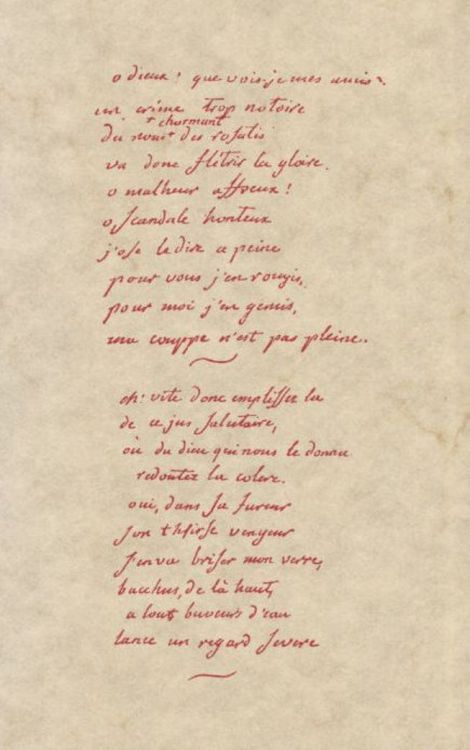 o dieux! que vois-je mes amis?
un crime trop notoire
du nom + charmant des rosatis
va donc flétrir la gloire.
o malheur affreux!
o scandale honteux
j'ose le dire a peine
pour vous j'en rougis,
pour moi j'en gemis,
ma couppe n'est pas pleine..
eh! vite donc emplissez la
de ce jus salutaire,
où du dieu qui nous le donna
redoutez la colere.
oui, dans sa fureur
son thirse vengeur
s'en va briser mon verre,
bacchus, de là haut,
a tout buveurs d'eau
lance un regard severe